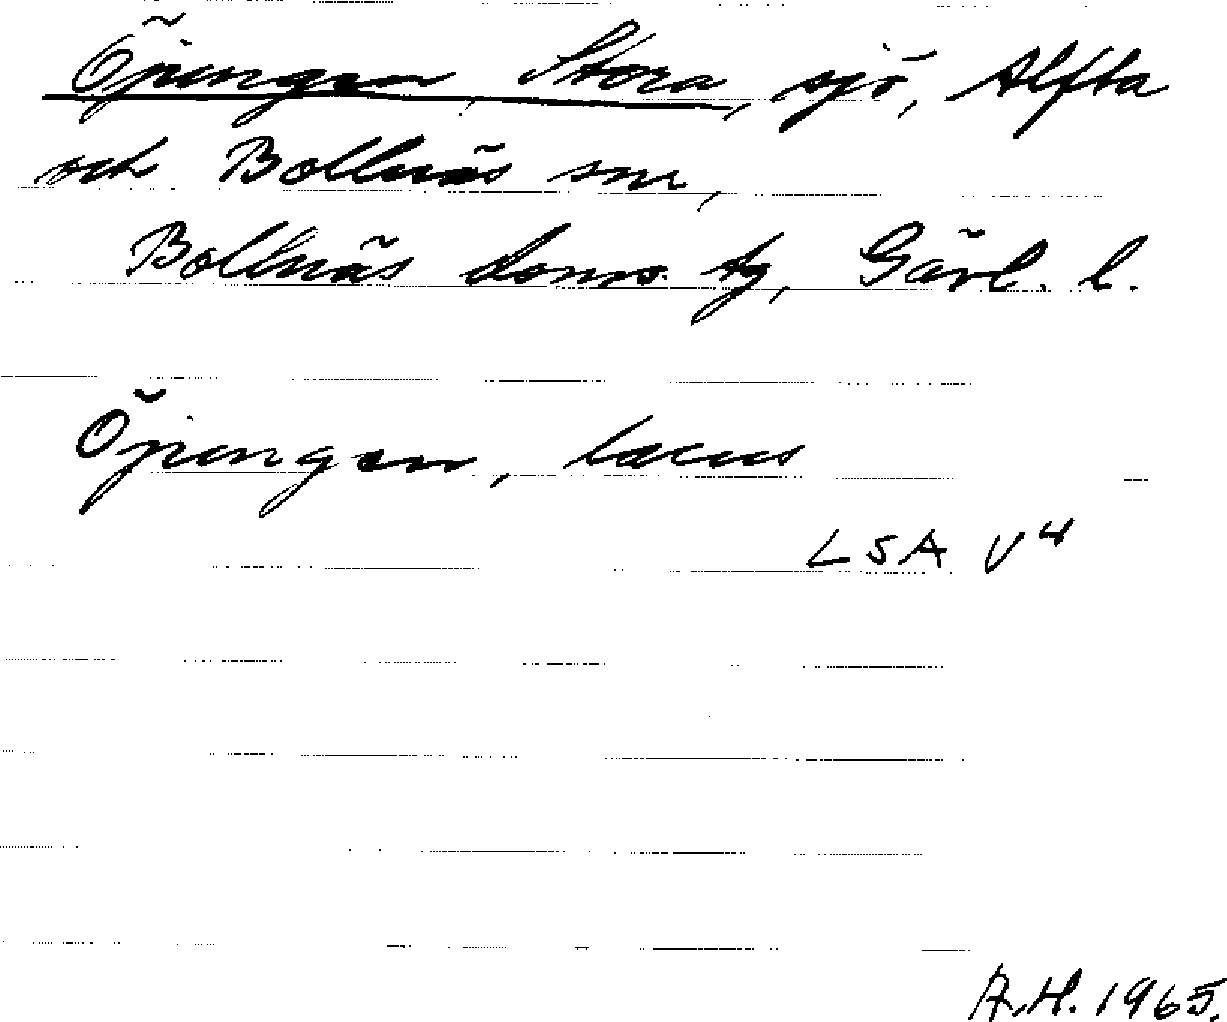 Öjungen, Stora, sjö, Alfta
och Bollnäs snr,
Bollnäs doms. tg, Gävl. l.
Öjungen, lacus
LSA V4
R.H. 1965.